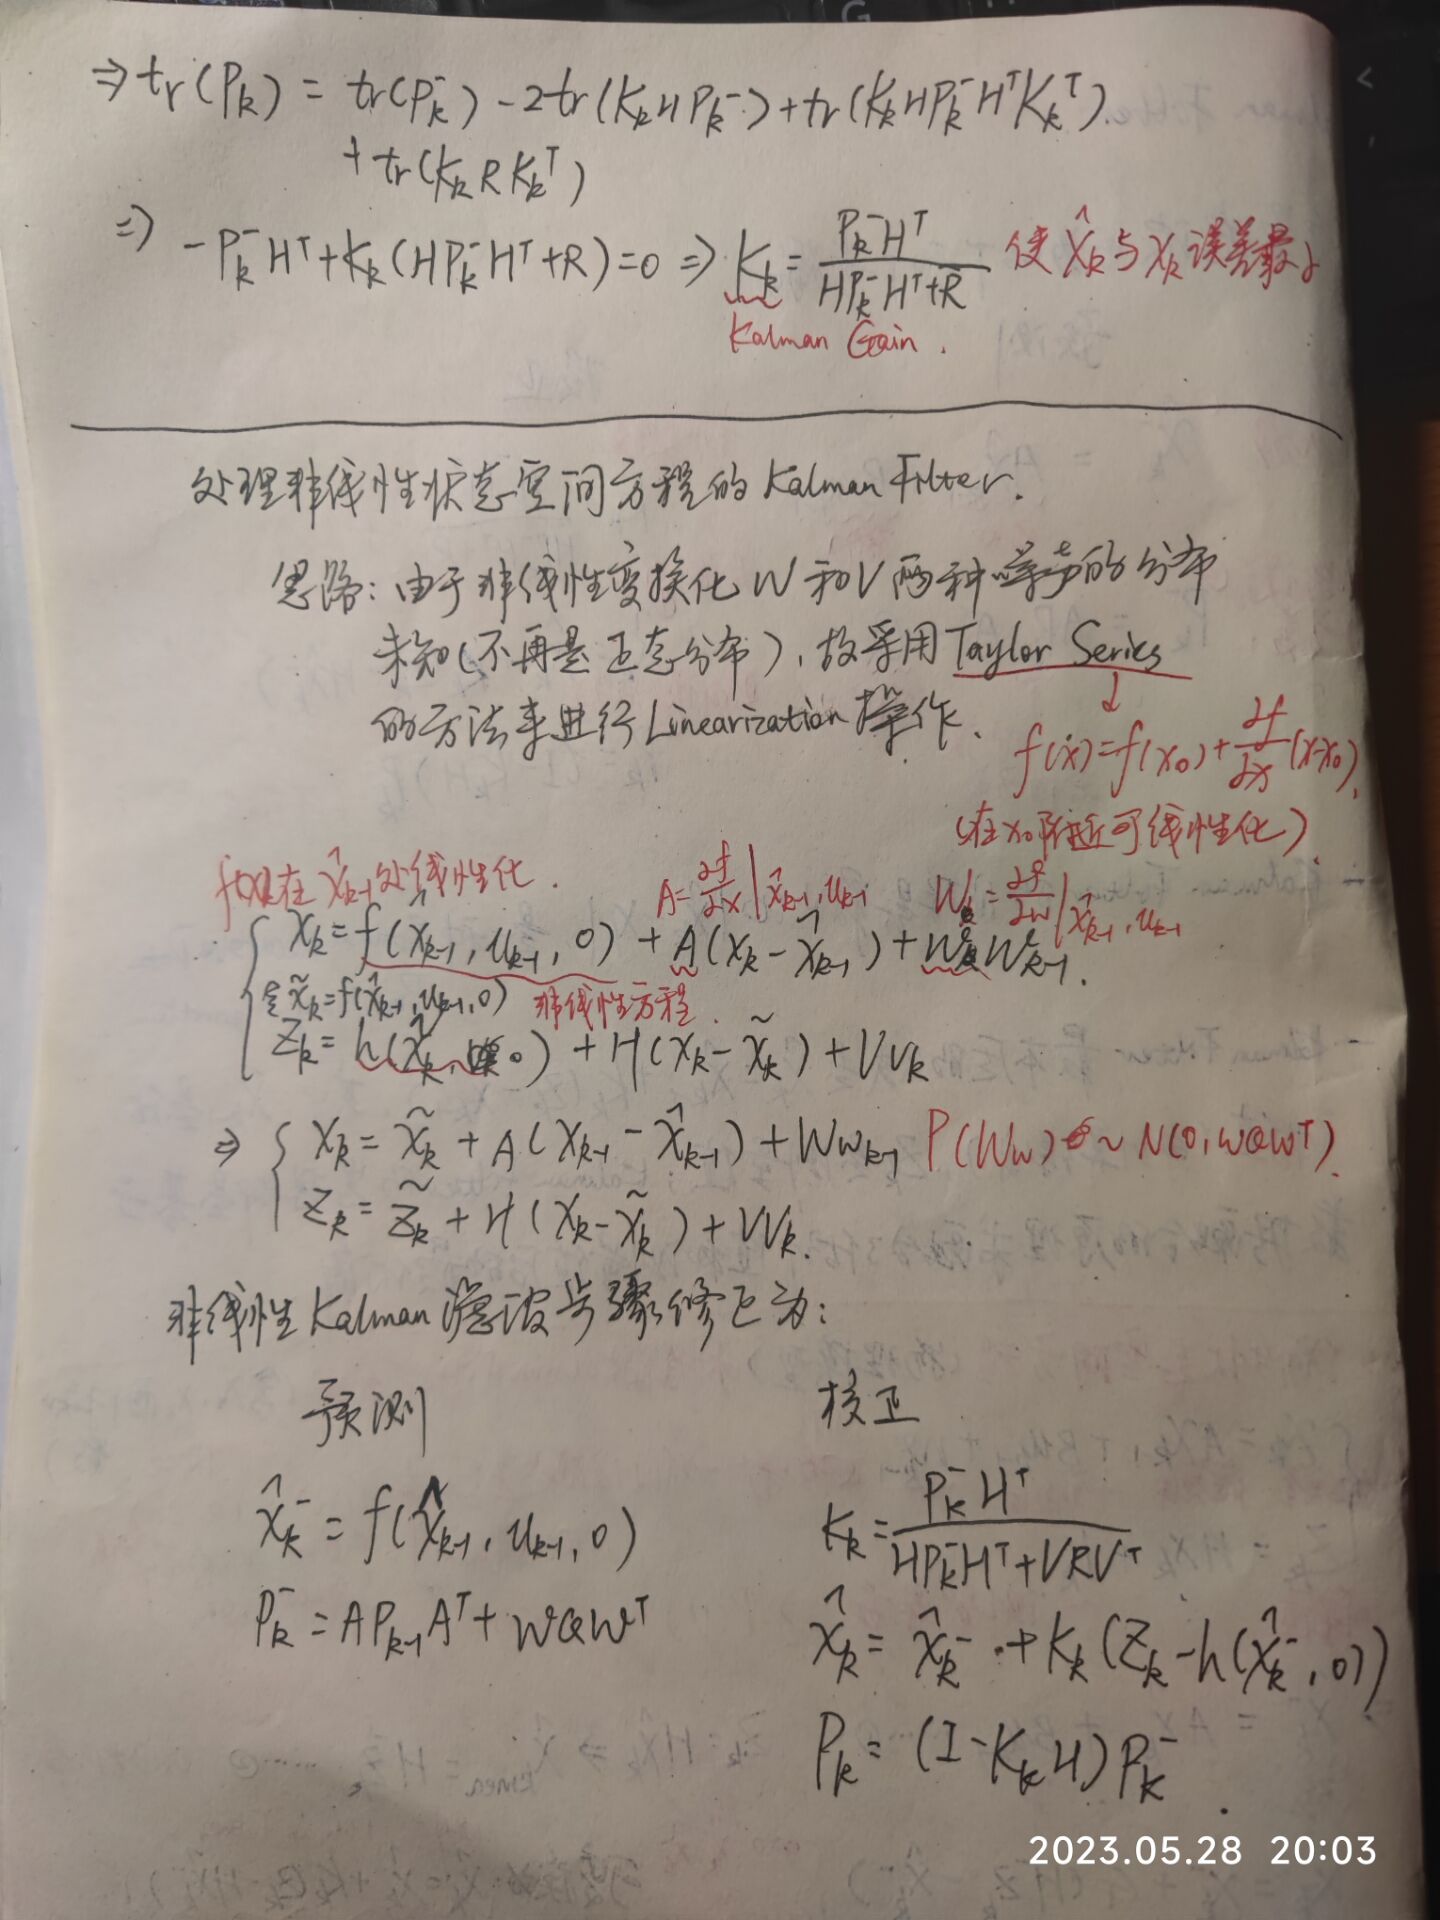 ⇒ tr(P_k) = tr(P_k^-) - 2tr(K_k H P_k^-) + tr(K_k H P_k^- H^T K_k^T)
+ tr(K_k R K_k^T)
⇒ -P_k^- H^T + K_k (H P_k^- H^T + R) = 0 ⇒ K_k = P_k^- H^T / (H P_k^- H^T + R) 使 x̂_k 与 x_k 误差最小
Kalman Gain.
处理非线性状态空间方程的 Kalman Filter.
思路: 由于非线性变换化 W 和 V 两种噪声的分布
未知(不再是正态分布), 故采用 Taylor Series
的方法来进行 Linearization 操作.
↓
f(x) = f(x_0) + ∂f/∂x (x-x_0),
(在 x_0 附近可线性化).
f(x)在 x̂_{k-1} 处线性化. A = ∂f/∂x | x̂_{k-1}, u_{k-1} W_k = ∂f/∂w | x̂_{k-1}, u_{k-1}
{ x_k = f(x̂_{k-1}, u_{k-1}, 0) + A(x_k - x̂_{k-1}) + W_k w_{k-1}.
令 x̃_k = f(x̂_{k-1}, u_{k-1}, 0) 非线性方程.
z_k = h(x̃_k, 0) + H(x_k - x̃_k) + V v_k
⇒ { x_k = x̃_k + A(x_{k-1} - x̂_{k-1}) + W w_{k-1} P(Ww) ~ N(0, WQW^T).
z_k = z̃_k + H(x_k - x̃_k) + V v_k.
非线性 Kalman 滤波步骤修正为:
预测 校正
x̂_k^- = f(x̂_{k-1}, u_{k-1}, 0) K_k = P_k^- H^T / (H P_k^- H^T + V R V^T)
P_k^- = A P_{k-1} A^T + W Q W^T x̂_k = x̂_k^- + K_k (z_k - h(x̂_k^-, 0))
P_k = (I - K_k H) P_k^-
2023.05.28 20:03